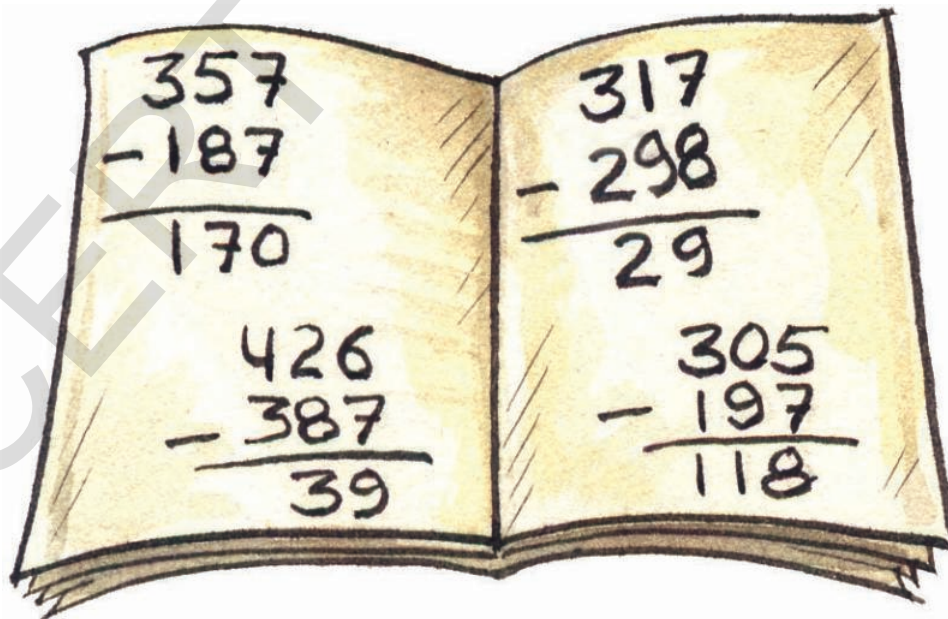 357
- 187
170
426
- 387
39
317
- 298
29
305
- 197
118